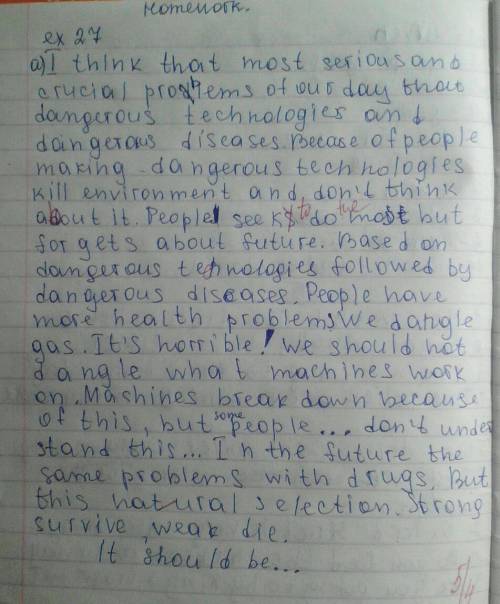 Homework.
ex 27
a) I think that most serious and
crucial problems of our day that
dangerous technologies and
dangerous diseases. Becase of people
making dangerous technologies
kill environment and don't think
about it. People seeks to do the most but
forgets about future. Based on
dangerous technologies followed by
dangerous diseases. People have
more health problems. We dangle
gas. It's horrible! We should not
dangle what machines work
on. Machines break down because
of this, but some people... don't under
stand this... In the future the
same problems with drugs. But
this natural selection. Strong
survive, weak die.
It should be...
5/4